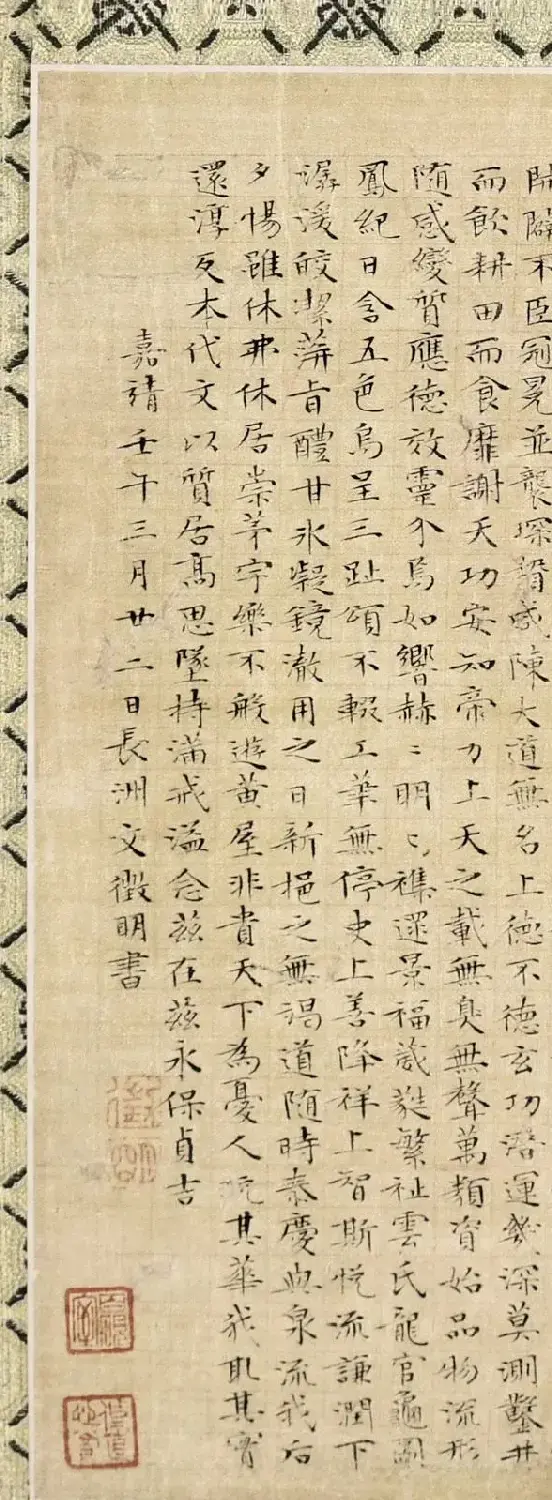 陏隦不臣冠冕並襲琛贄咸陳大道無名上德不德玄功潛運幾深莫測鑿井
而飲耕田而食靡謝天功安知帝力上天之載無臭無聲萬類資始品物流形
随感變質應德效靈介焉如響赫〻明〻襍還景福葳蕤繁祉雲氏龍官龜圖
鳳紀日含五色烏呈三趾頌不輟工筆無停史上善降祥上智斯悅流謙潤下
潺湲皎潔蓱旨醴甘氷凝鏡澈用之日新挹之無渴道随時泰慶與泉流我后
夕惕雖休弗休居崇茅宇樂不般遊黄屋非貴天下為憂人玩其華我取其實
還淳反本代文以質居髙思墜持滿戒溢念茲在茲永保貞吉
嘉靖壬午三月廿二日長洲文徵明書